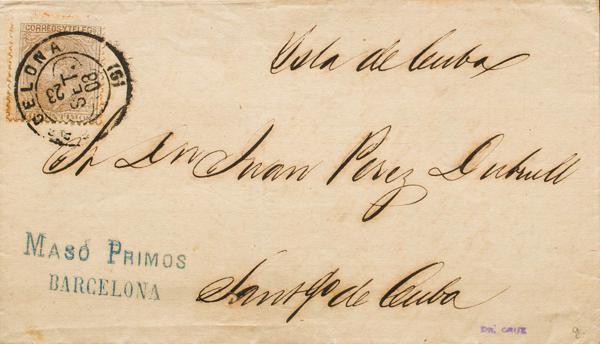 CORREOS Y TELEG
CELONA
23
SET.
80
(6)
Isla de Cuba
Sr Dn Juan Perez Dubrull
MASÓ PRIMOS
BARCELONA
Santgo de Cuba
DR. CRUZ